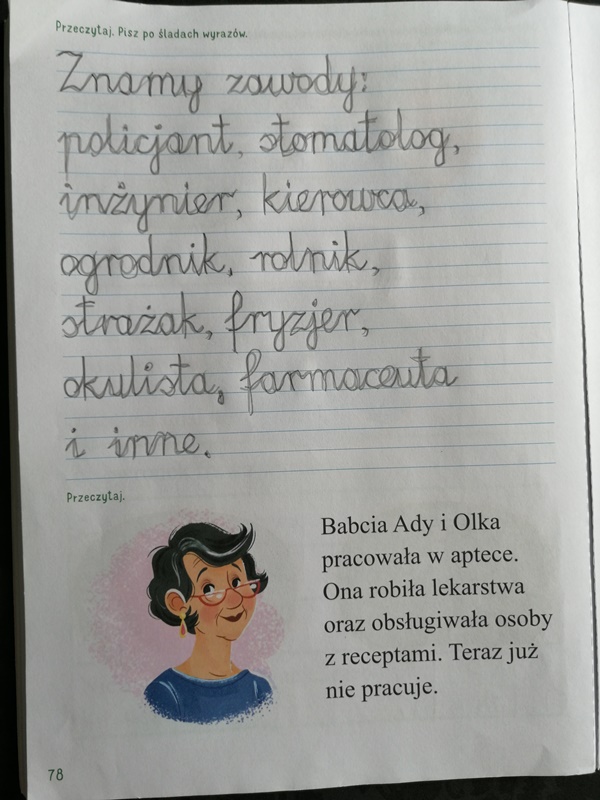 Przeczytaj. Pisz po śladach wyrazów.
Znamy zawody:
policjant, stomatolog,
inżynier, kierowca,
ogrodnik, rolnik,
strażak, fryzjer,
okulista, farmaceuta
i inne.
Przeczytaj.
Babcia Ady i Olka
pracowała w aptece.
Ona robiła lekarstwa
oraz obsługiwała osoby
z receptami. Teraz już
nie pracuje.
78